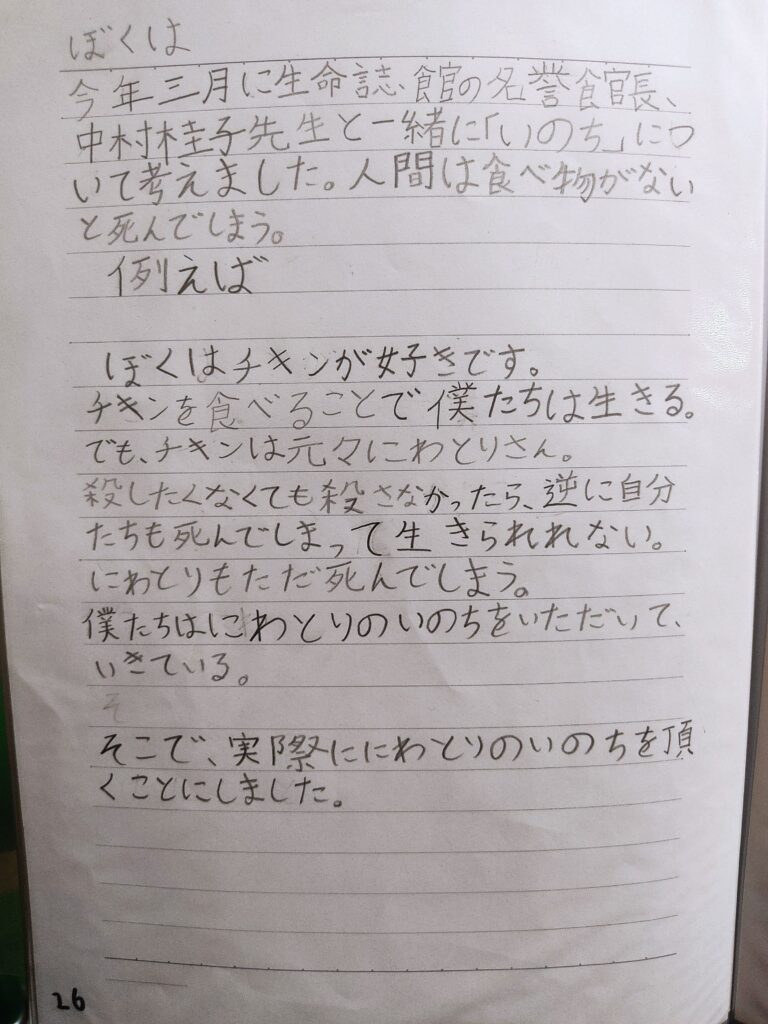 ぼくは
今年三月に生命誌館の名誉館長、
中村桂子先生と一緒に「いのち」につ
いて考えました。人間は食べ物がない
と死んでしまう。
例えば
ぼくはチキンが好きです。
チキンを食べることで僕たちは生きる。
でも、チキンは元々にわとりさん。
殺したくなくても殺さなかったら、逆に自分
たちも死んでしまって生きられれない。
にわとりもただ死んでしまう。
僕たちはにわとりのいのちをいただいて、
いきている。
そ
そこで、実際ににわとりのいのちを頂
くことにしました。
26